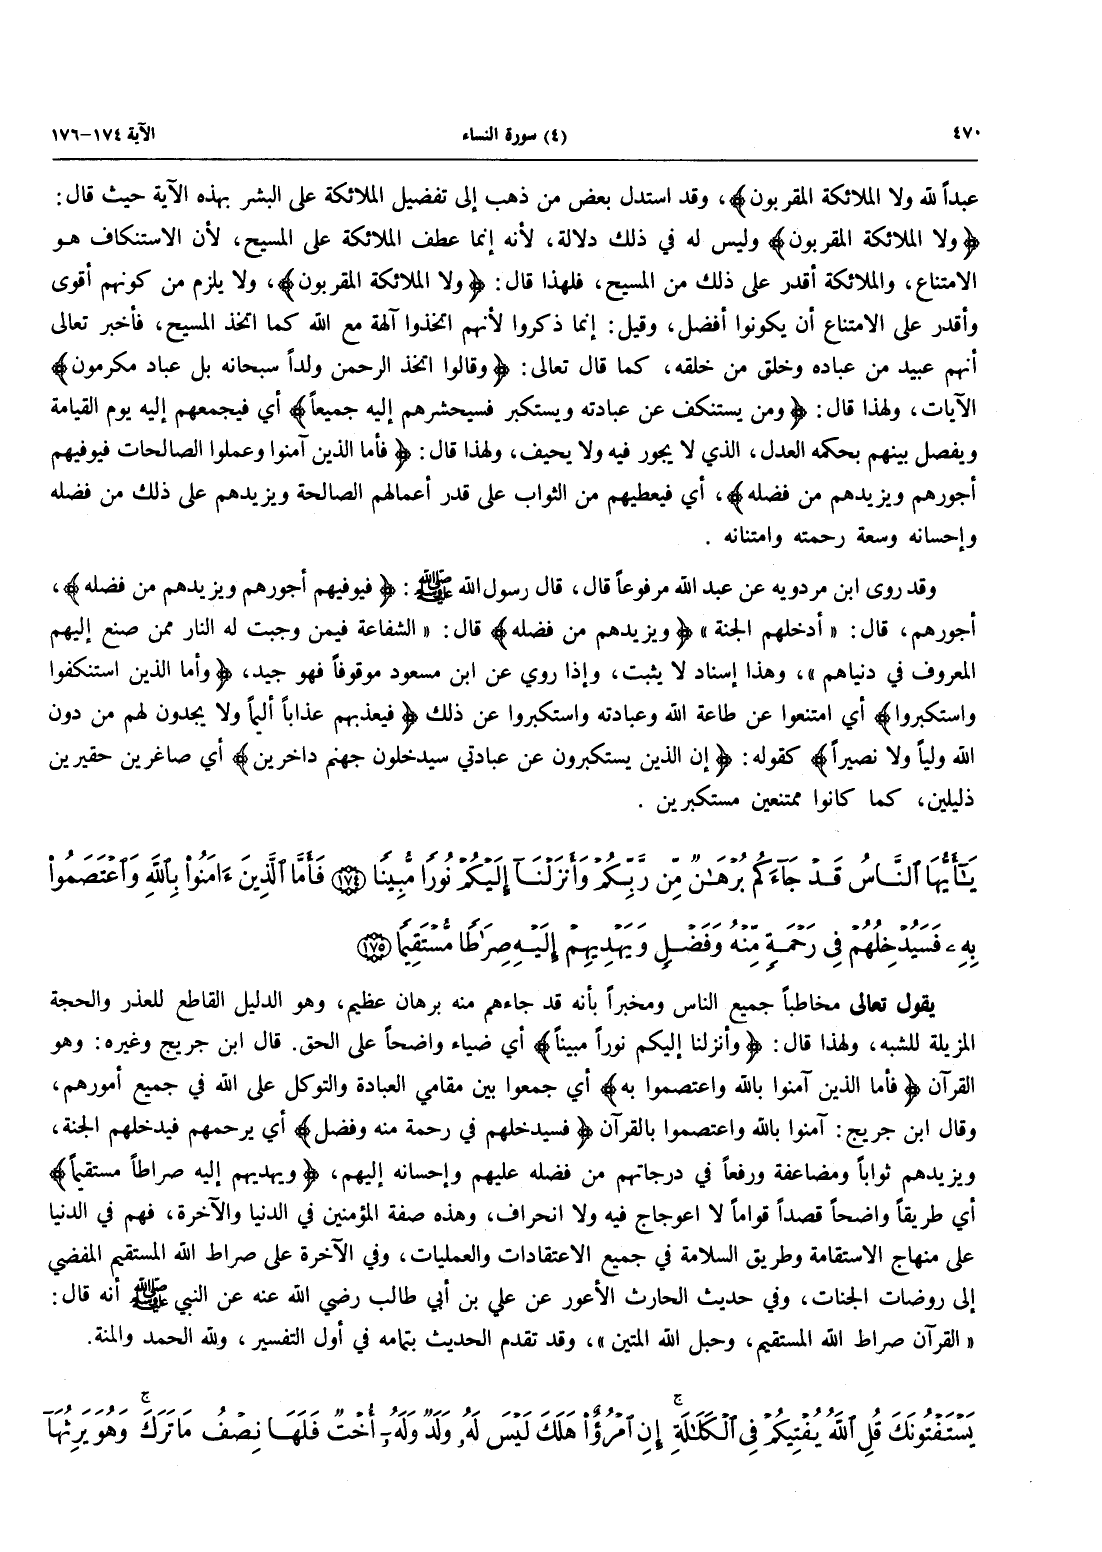 ٤٧٠ (٤) سورة النساء الآية ١٧٤-١٧٦
عبداً لله ولا الملائكة المقربون﴾، وقد استدل بعض من ذهب إلى تفضيل الملائكة على البشر بهذه الآية حيث قال:
﴿ولا الملائكة المقربون﴾ وليس له في ذلك دلالة، لأنه إنما عطف الملائكة على المسيح، لأن الاستنكاف هو
الامتناع، والملائكة أقدر على ذلك من المسيح، فلهذا قال: ﴿ولا الملائكة المقربون﴾، ولا يلزم من كونهم أقوى
وأقدر على الامتناع أن يكونوا أفضل، وقيل: إنما ذكروا لأنهم اتخذوا آلهة مع الله كما اتخذ المسيح، فأخبر تعالى
أنهم عبيد من عباده وخلق من خلقه، كما قال تعالى: ﴿وقالوا اتخذ الرحمن ولداً سبحانه بل عباد مكرمون﴾
الآيات، ولهذا قال: ﴿ومن يستنكف عن عبادته ويستكبر فسيحشرهم إليه جميعاً﴾ أي فيجمعهم إليه يوم القيامة
ويفصل بينهم بحكمه العدل، الذي لا يجور فيه ولا يحيف، ولهذا قال: ﴿فأما الذين آمنوا وعملوا الصالحات فيوفيهم
أجورهم ويزيدهم من فضله﴾، أي فيعطيهم من الثواب على قدر أعمالهم الصالحة ويزيدهم على ذلك من فضله
وإحسانه وسعة رحمته وامتنانه .
وقد روى ابن مردويه عن عبد الله مرفوعاً قال، قال رسول الله ﷺ: ﴿فيوفيهم أجورهم ويزيدهم من فضله﴾،
أجورهم، قال: « أدخلهم الجنة » ﴿ويزيدهم من فضله﴾ قال: « الشفاعة فيمن وجبت له النار ممن صنع إليهم
المعروف في دنياهم »، وهذا إسناد لا يثبت، وإذا روي عن ابن مسعود موقوفاً فهو جيد، ﴿وأما الذين استنكفوا
واستكبروا﴾ أي امتنعوا عن طاعة الله وعبادته واستكبروا عن ذلك ﴿فيعذبهم عذاباً أليماً ولا يجدون لهم من دون
الله ولياً ولا نصيراً﴾ كقوله: ﴿إن الذين يستكبرون عن عبادتي سيدخلون جهنم داخرين﴾ أي صاغرين حقيرين
ذليلين، كما كانوا ممتنعين مستكبرين .
يَٰٓأَيُّهَا ٱلنَّاسُ قَدْ جَآءَكُم بُرْهَٰنٌ مِّن رَّبِّكُمْ وَأَنزَلْنَآ إِلَيْكُمْ نُورًا مُّبِينًا ١٧٤ فَأَمَّا ٱلَّذِينَ ءَامَنُوا۟ بِٱللَّهِ وَٱعْتَصَمُوا۟
بِهِۦ فَسَيُدْخِلُهُمْ فِى رَحْمَةٍ مِّنْهُ وَفَضْلٍ وَيَهْدِيهِمْ إِلَيْهِ صِرَٰطًا مُّسْتَقِيمًا ١٧٥
يقول تعالى مخاطباً جميع الناس ومخبراً بأنه قد جاءهم منه برهان عظيم، وهو الدليل القاطع للعذر والحجة
المزيلة للشبه، ولهذا قال: ﴿وأنزلنا إليكم نوراً مبيناً﴾ أي ضياء واضحاً على الحق. قال ابن جريج وغيره: وهو
القرآن ﴿فأما الذين آمنوا بالله واعتصموا به﴾ أي جمعوا بين مقامي العبادة والتوكل على الله في جميع أمورهم،
وقال ابن جريج: آمنوا بالله واعتصموا بالقرآن ﴿فسيدخلهم في رحمة منه وفضل﴾ أي يرحمهم فيدخلهم الجنة،
ويزيدهم ثواباً ومضاعفة ورفعاً في درجاتهم من فضله عليهم وإحسانه إليهم، ﴿ويهديهم إليه صراطاً مستقيماً﴾
أي طريقاً واضحاً قصداً قواماً لا اعوجاج فيه ولا انحراف، وهذه صفة المؤمنين في الدنيا والآخرة، فهم في الدنيا
على منهاج الاستقامة وطريق السلامة في جميع الاعتقادات والعمليات، وفي الآخرة على صراط الله المستقيم المفضي
إلى روضات الجنات، وفي حديث الحارث الأعور عن علي بن أبي طالب رضي الله عنه عن النبي ﷺ أنه قال:
« القرآن صراط الله المستقيم، وحبل الله المتين »، وقد تقدم الحديث بتمامه في أول التفسير ، ولله الحمد والمنة.
يَسْتَفْتُونَكَ قُلِ ٱللَّهُ يُفْتِيكُمْ فِى ٱلْكَلَٰلَةِ ۚ إِنِ ٱمْرُؤٌا۟ هَلَكَ لَيْسَ لَهُۥ وَلَدٌ وَلَهُۥٓ أُخْتٌ فَلَهَا نِصْفُ مَا تَرَكَ ۚ وَهُوَ يَرِثُهَآ